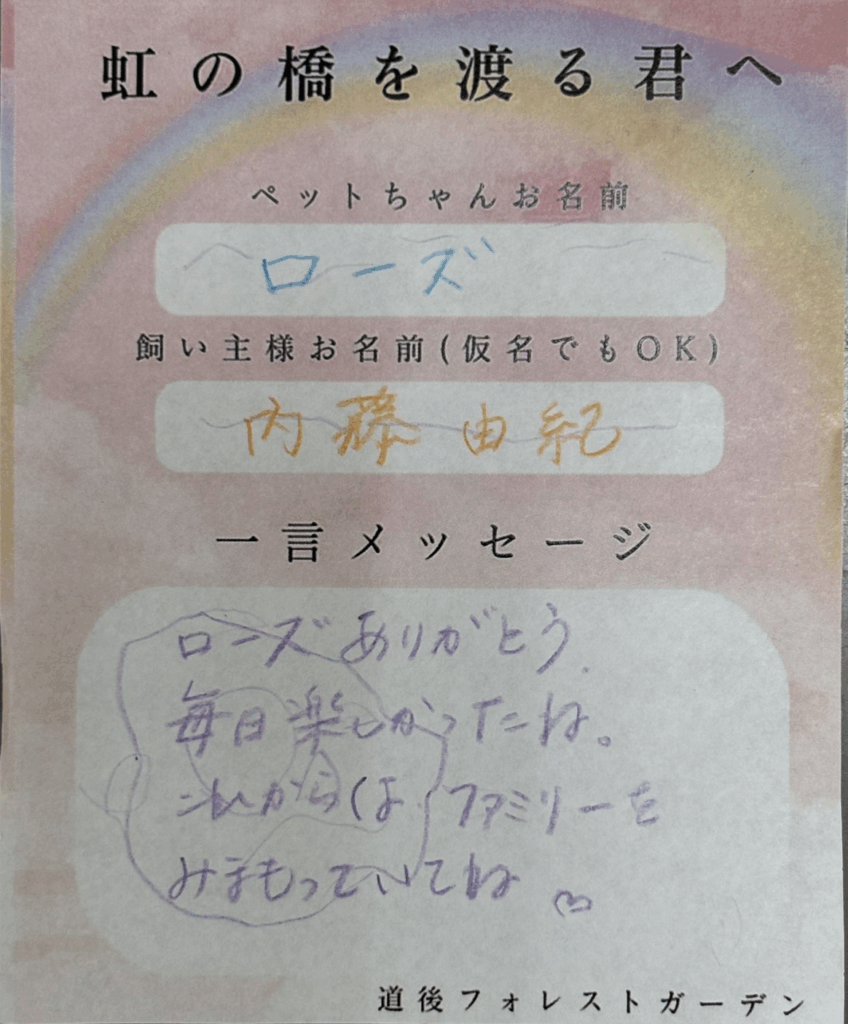 虹の橋を渡る君へ
ペットちゃんお名前
ローズ
飼い主様お名前(仮名でもOK)
内藤 由紀
一言メッセージ
ローズありがとう.
毎日楽しかったね。
これからは ファミリーを
みまもっていてね
道後フォレストガーデン